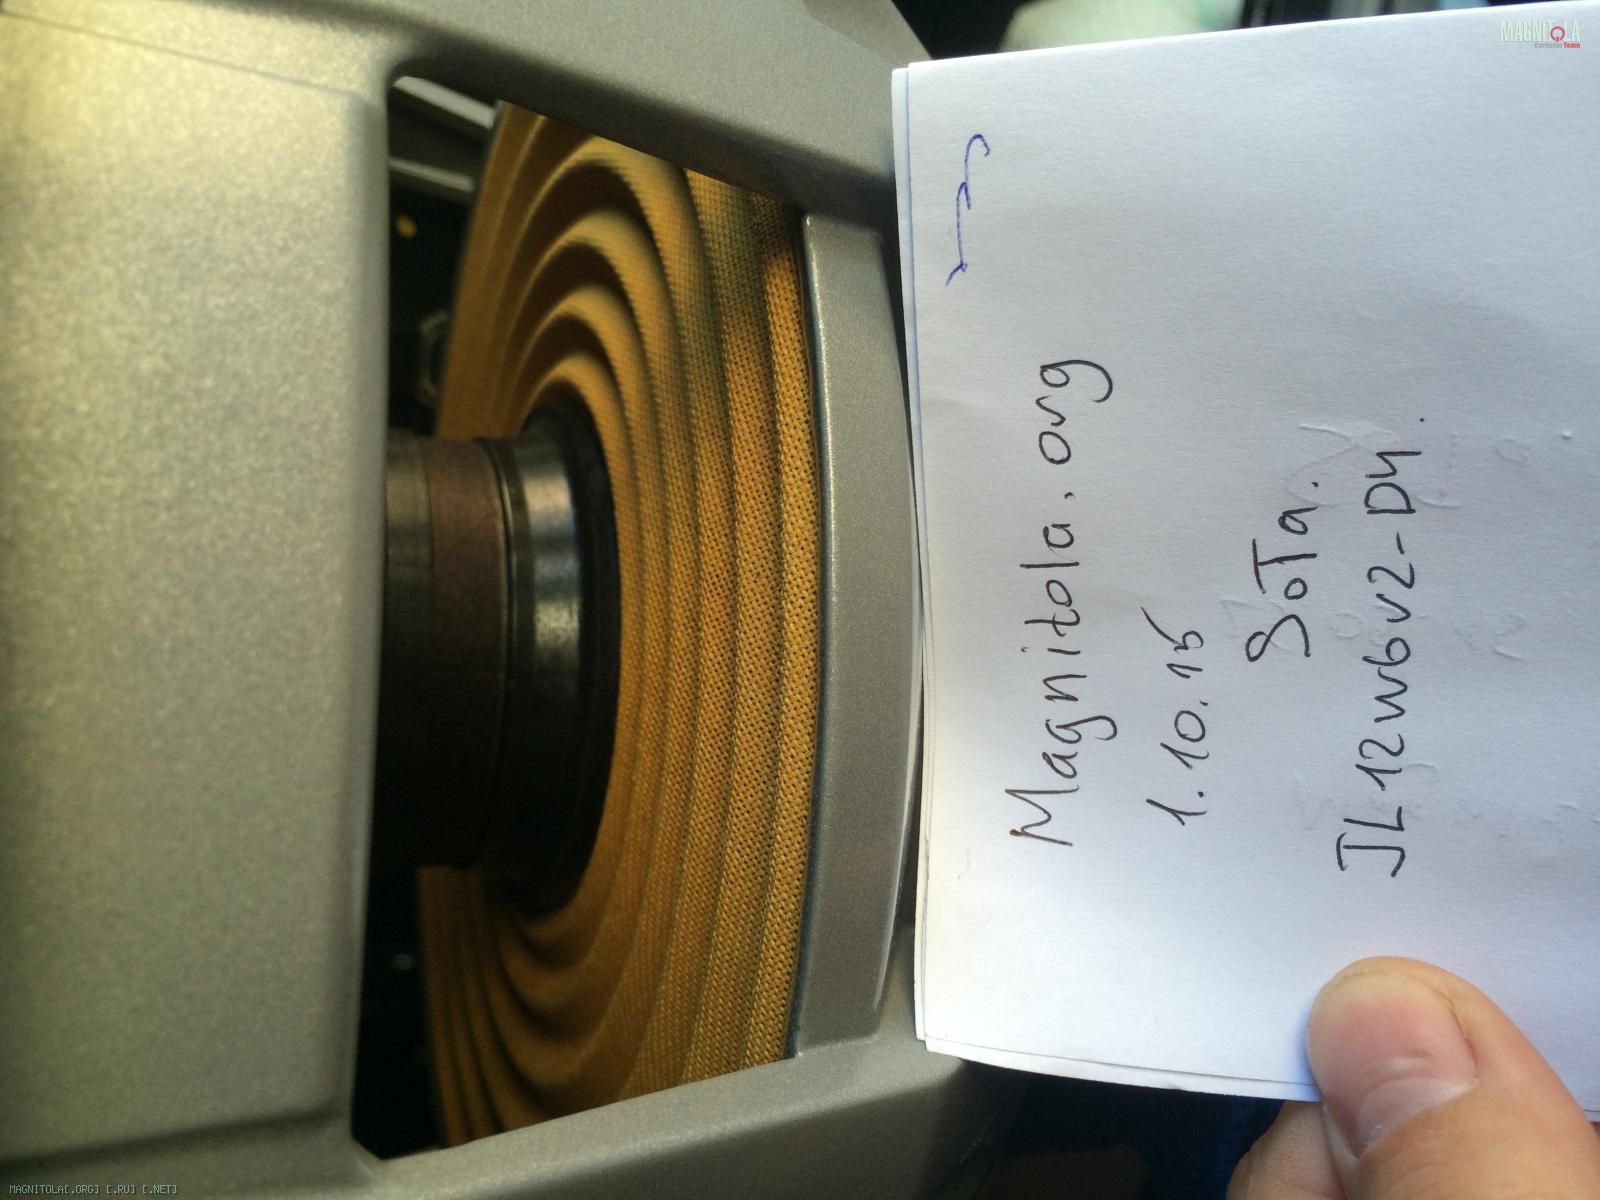 MAGNITOLA
CarAudio Team
Magnitola.org
1.10.15
SoTa.
JL 12w6v2-D4.
MAGNITOLA[.ORG] [.RU] [.NET]